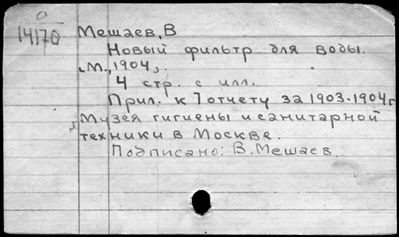 О
14170
Мешаев, В
Новый фильтр для воды.
[М., 1904].
4 стр. с илл.
Прил. к 7 отчету за 1903-1904 г
Музея гигиены и санитарной
техники в Москве.
Подписано: В. Мешаев.